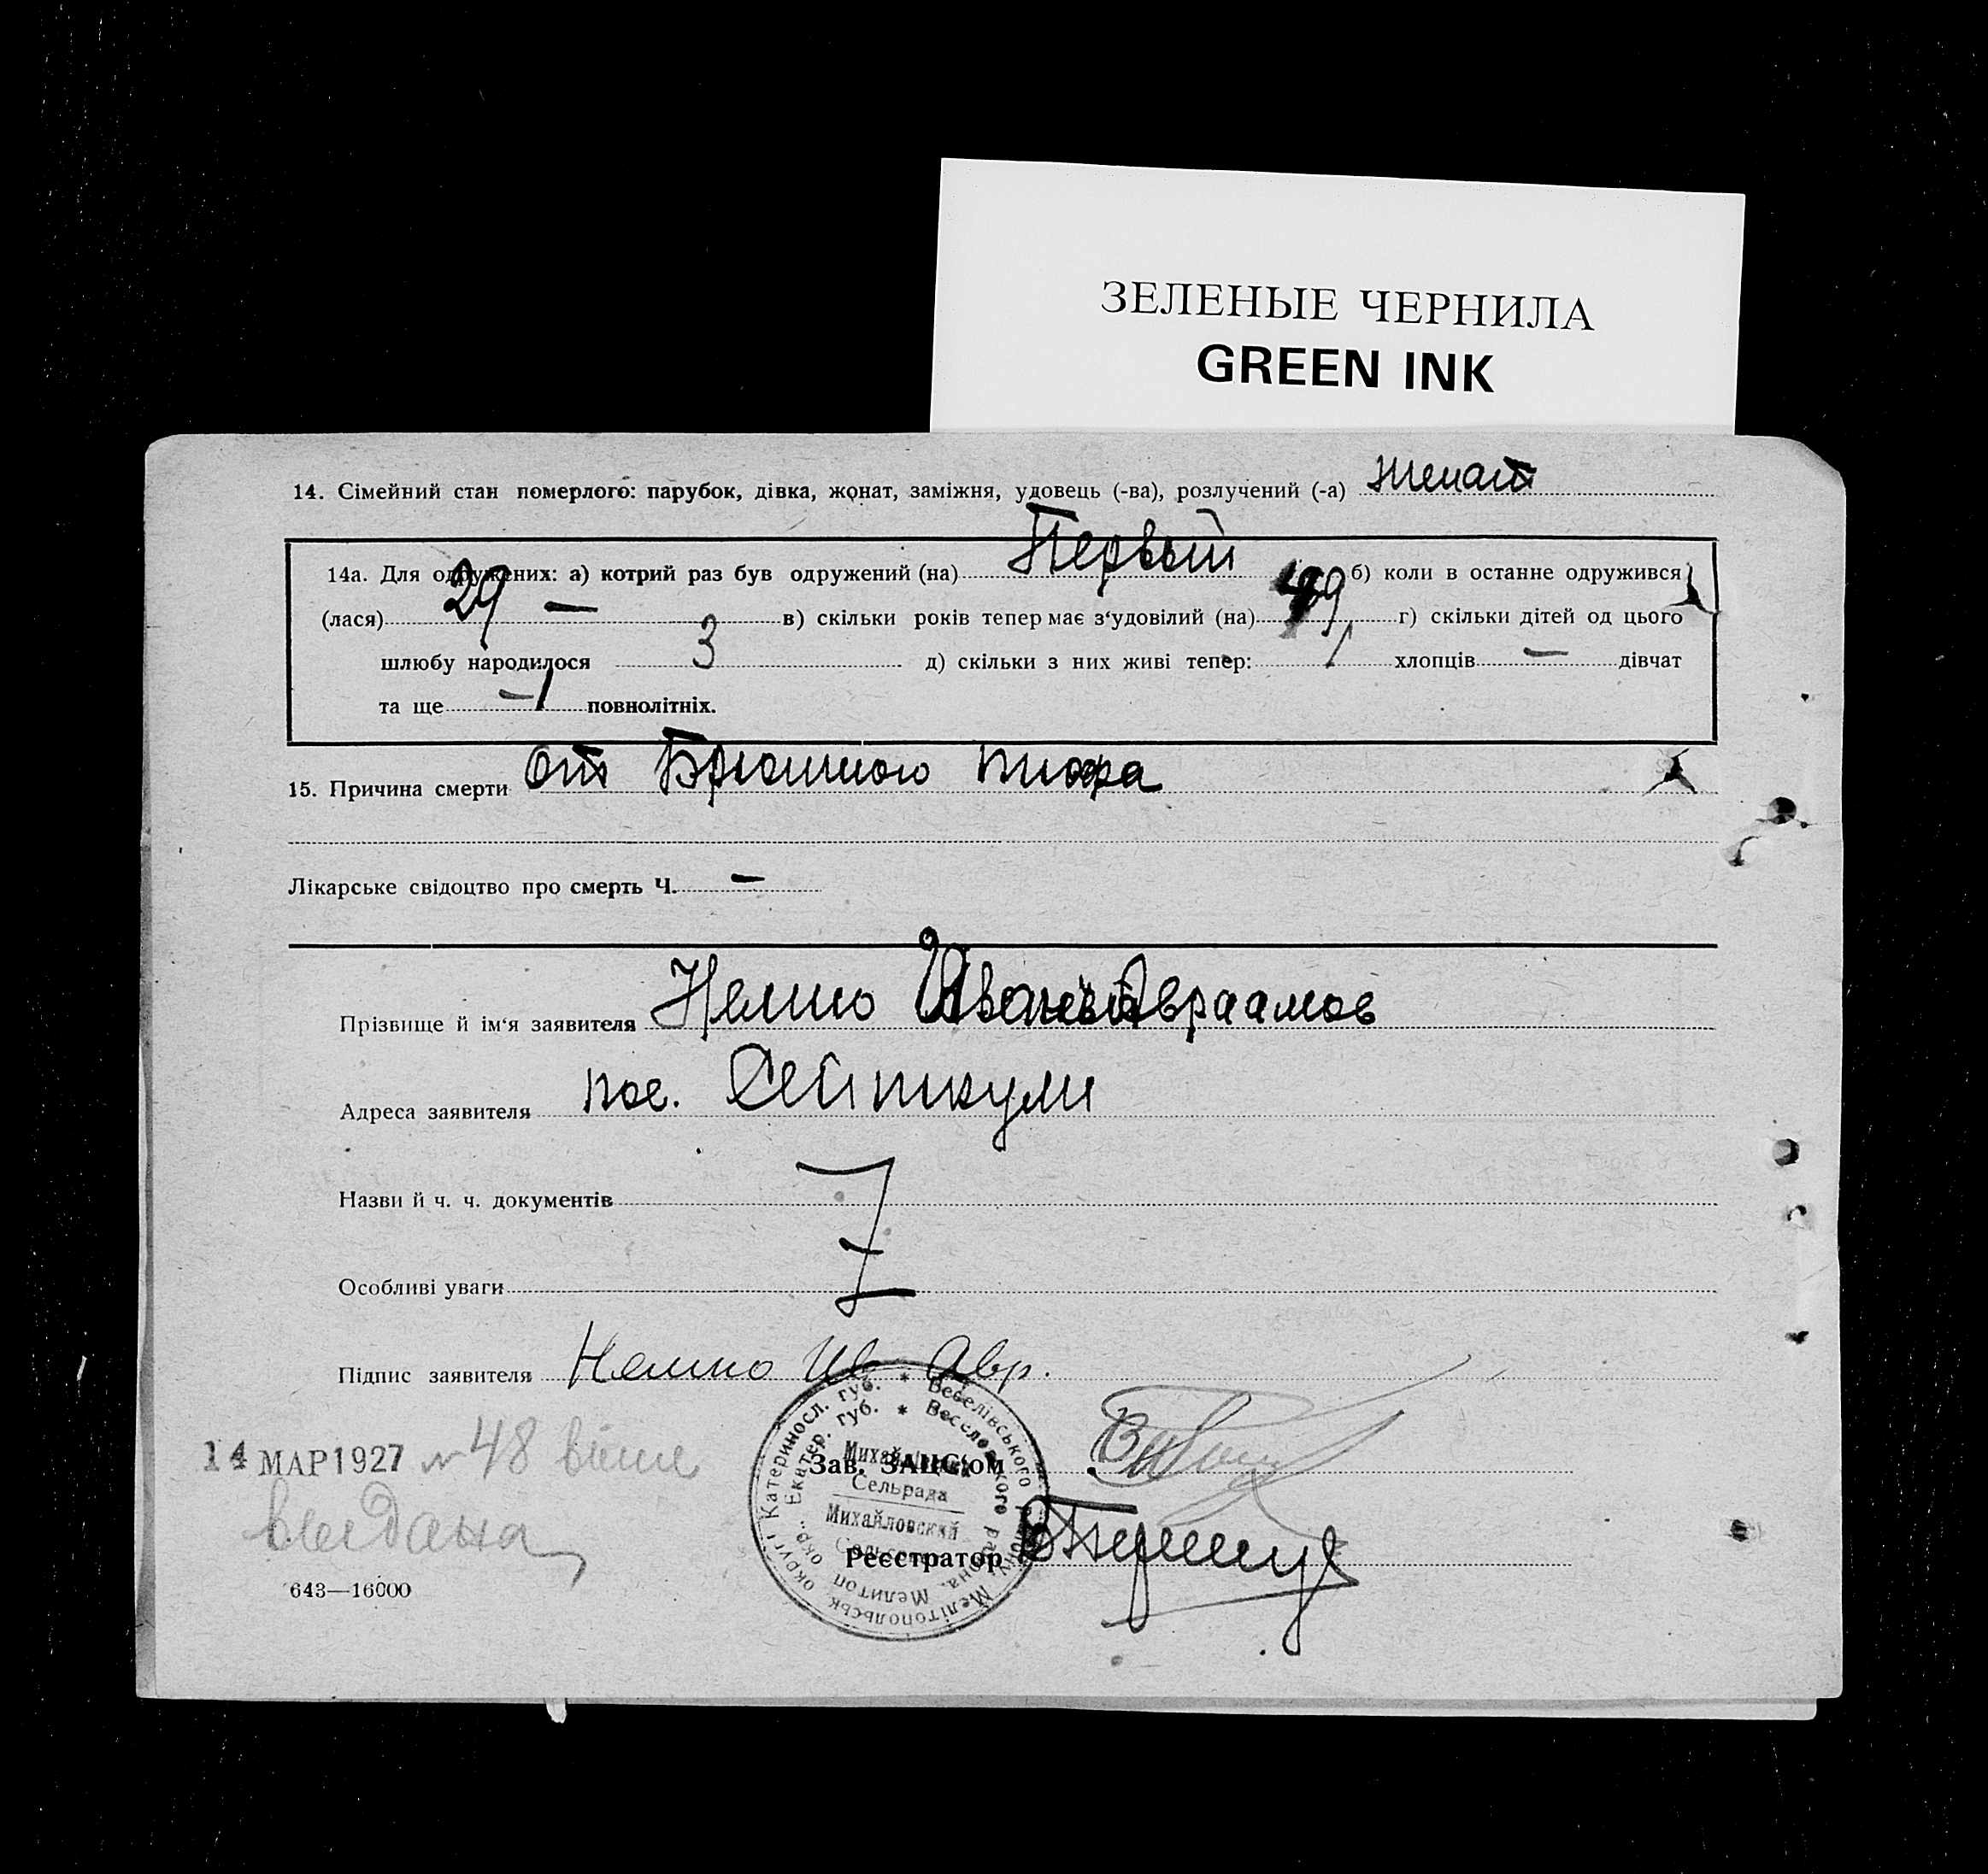 ЗЕЛЕНЫЕ ЧЕРНИЛА
GREEN INK
14. Сімейний стан померлого: парубок, дівка, жонат, заміжня, удовець (-ва), розлучений (-а) женат
14а. Для одружених: а) котрий раз був одружений (на) Первый б) коли в останне одружився
(лася) 29 — в) скільки років тепер має з‘удовілий (на) 49 г) скільки дітей од цього
шлюбу народилося 3 д) скільки з них живі тепер: 1 хлопців — дівчат
та ще —1 повнолітніх.
15. Причина смерти от Брюшного тифа
Лікарське свідоцтво про смерть Ч. —
Прізвище й ім‘я заявителя Авраамов
Адреса заявителя пос. Сейткули
Назви й ч. ч. документів
Особливі уваги
Підпис заявителя Ив Авр.
14 МАР 1927 № 48
видана
Зав. ЗАЦС‘ом
Реєстратор
643—16000
Катериносл. губ. * Веселівського району Мелітопольськ округ
Екатер. губ. * Веселовского района, Мелитоп окр.
Сельрада
Михайловский